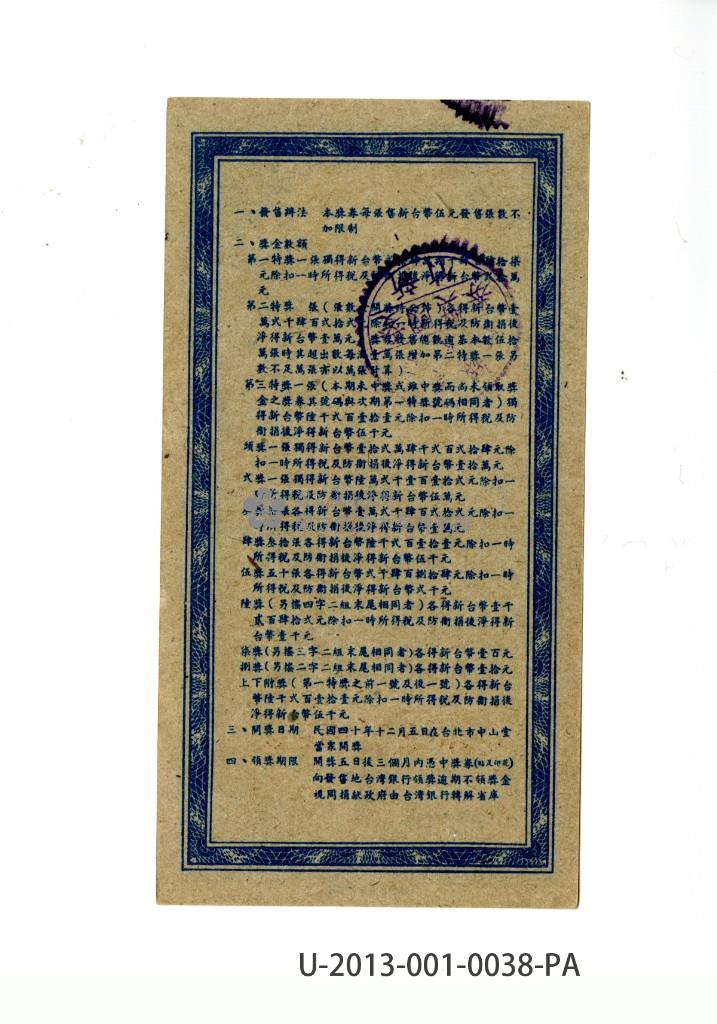 一、發售辦法 本獎券每張售新台幣伍元發售張數不
加限制
二、獎金數額
第一特獎一張獨得新台幣
元除扣一時所得稅及
元
第二特獎 張(張數
萬弍千肆百弍拾弍 除扣一時所得稅及防衛捐後
淨得新台幣壹萬元
萬張時其超出數每 萬張增加第二特獎一張另
數不足萬張亦以萬張計算)
第三特獎一張(本期未中獎或雖中獎而尚未領取獎
金之獎券其號碼與次期第一特獎號碼相同者)獨
得新台幣陸千弍百壹拾壹元除扣一時所得稅及防
衛捐後淨得新台幣伍千元
頭獎一張獨得新台幣壹拾弍萬肆千弍百弍拾肆元除
扣一時所得稅及防衛捐後淨得新台幣壹拾萬元
弍獎一張獨得新台幣陸萬弍千壹百壹拾弍元除扣一
時所得稅及防衛捐後淨得新台幣伍萬元
張各得新台幣壹萬弍千肆百弍拾弍元除扣一
時所得稅及防衛捐後淨得新台幣壹萬元
肆獎叁拾張各得新台幣陸千弍百壹拾壹元除扣一時
所得稅及防衛捐後淨得新台幣伍千元
伍獎五十張各得新台幣弍千肆百捌拾肆元除扣一時
所得稅及防衛捐後淨得新台幣弍千元
陸獎(另搖四字二組末尾相同者)各得新台幣壹千
貳百肆拾弍元除扣一時所得稅及防衛捐後淨得新
台幣壹千元
柒獎(另搖三字二組末尾相同者)各得新台幣壹百元
捌獎(另搖二字二組末尾相同者)各得新台幣壹拾元
上下附獎(第一特獎之前一號及後一號)各得新台
幣陸千弍百壹拾壹元除扣一時所得稅及防衛捐後
淨得新台幣伍千元
三、開獎日期 民國四十年十二月五日在台北市中山堂
當眾開獎
四、領獎期限 開獎五日後三個月內憑中獎券(貼足印花)
向發售地台灣銀行領獎逾期不領獎金
視同捐獻政府由台灣銀行轉解省庫
U-2013-001-0038-PA